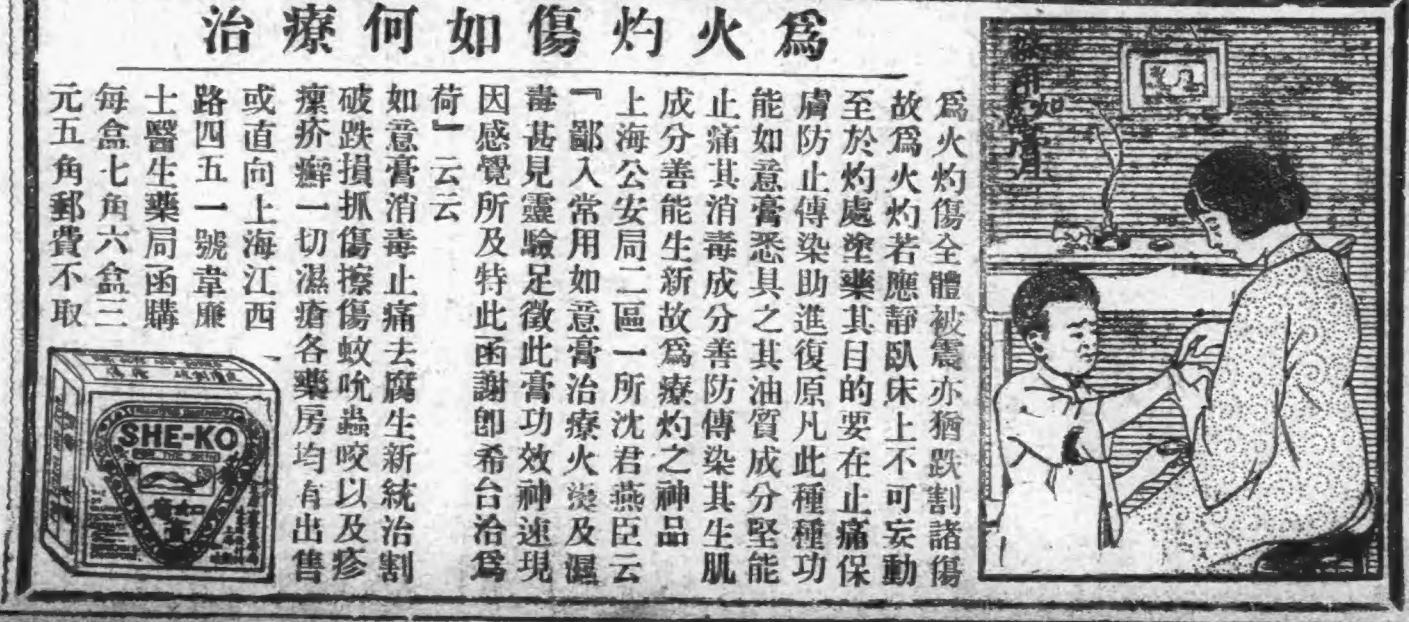 為火灼傷如何療治
為火灼傷全體被震亦猶跌割諸傷
故為火灼若應靜臥床上不可妄動
至於灼處塗藥其目的要在止痛保
膚防止傳染助進復原凡此種種功
能如意膏悉具之其油質成分堅能
止痛其消毒成分善防傳染其生肌
成分善能生新故為療灼之神品
上海公安局二區一所沈君燕臣云
『鄙入常用如意膏治療火燙及濕
毒甚見靈驗足徵此膏功效神速現
因感覺所及特此函謝卽希台洽為
荷』云云
如意膏消毒止痛去腐生新統治割
破跌損抓傷擦傷蚊吮蟲咬以及疹
瘰疥癬一切濕瘡各藥房均有出售
或直向上海江西
路四五一號韋廉
士醫生藥局函購
每盒七角六盒三
元五角郵費不取
SHE-KO
FOR THE SKIN
如意膏